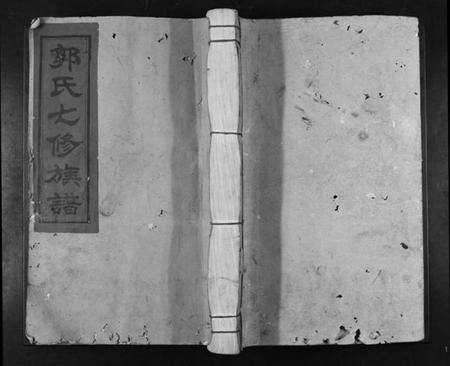 郭氏七修族譜